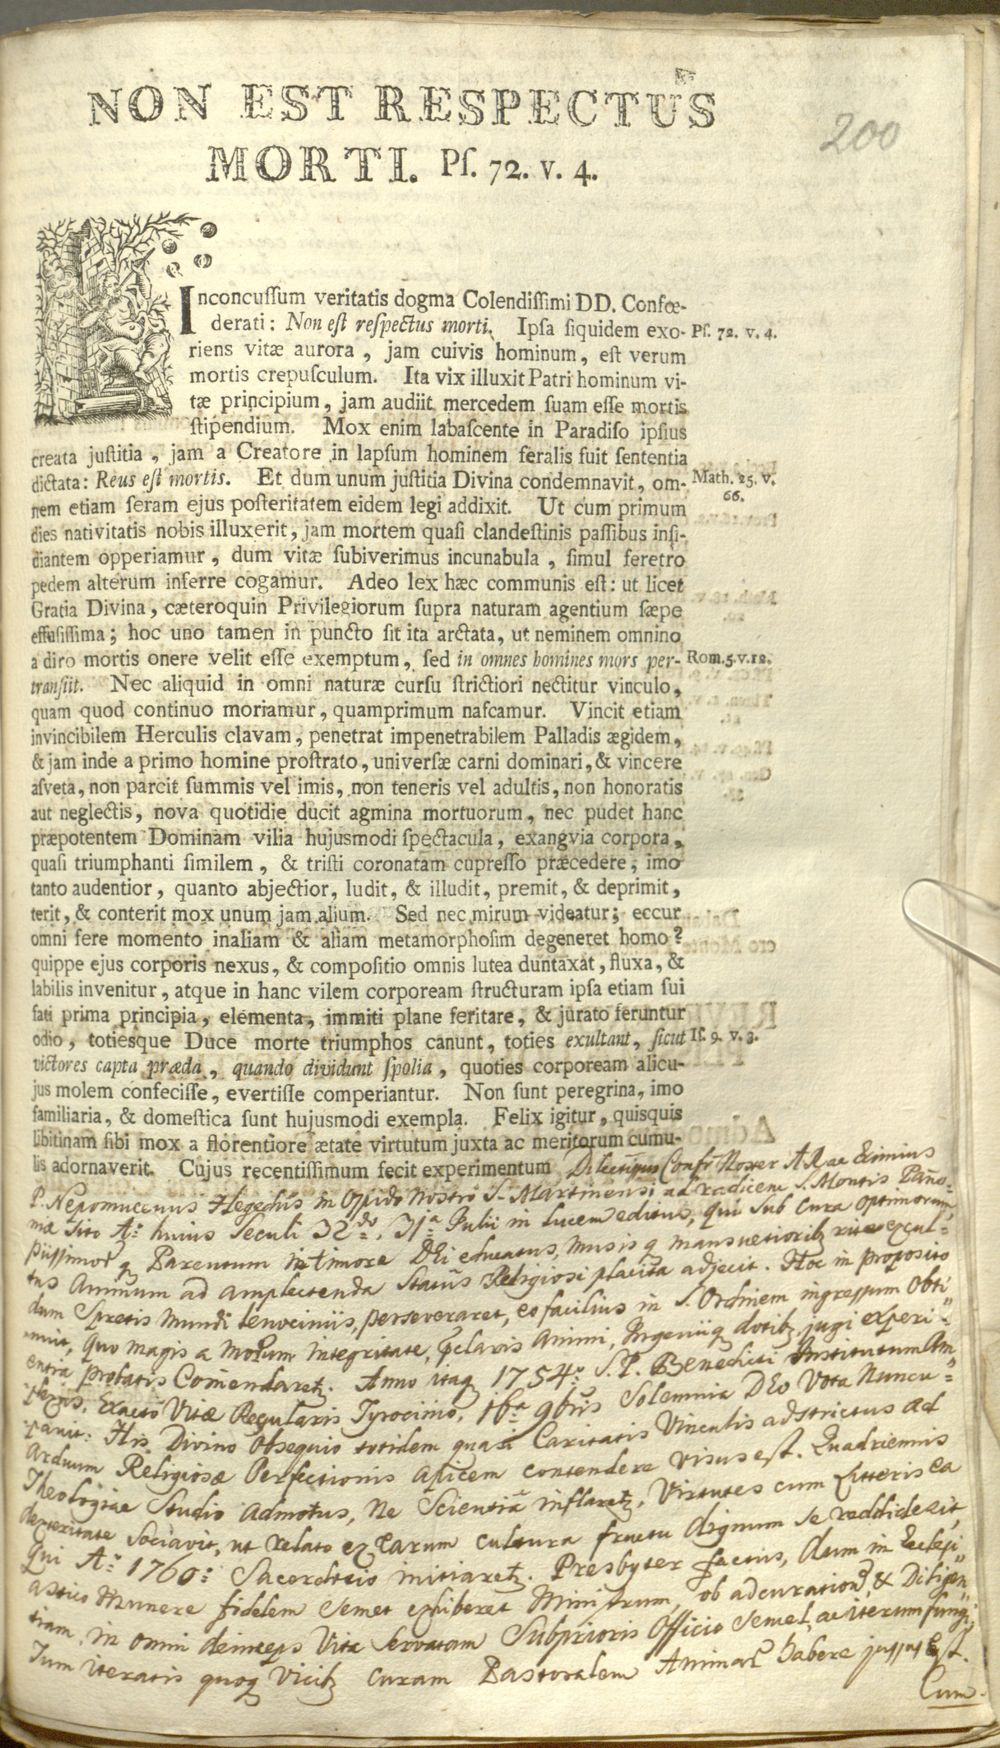 NON EST RESPECTUS
MORTI. Pſ. 72. v. 4.
200
Inconcuſſum veritatis dogma Colendiſſimi DD. Confœ-
derati: Non eſt reſpectus morti. Ipſa ſiquidem exo-
Pſ. 72. v. 4.
riens vitæ aurora, jam cuivis hominum, eſt verum
mortis crepuſculum. Ita vix illuxit Patri hominum vi-
tæ principium, jam audiit mercedem ſuam eſſe mortis
ſtipendium. Mox enim labaſcente in Paradiſo ipſius
creata juſtitia, jam a Creatore in lapſum hominem feralis fuit ſententia
dictata: Reus eſt mortis. Et dum unum juſtitia Divina condemnavit, om-
Math. 25. v.
66.
nem etiam ſeram ejus poſteritatem eidem legi addixit. Ut cum primum
dies nativitatis nobis illuxerit, jam mortem quaſi clandeſtinis paſſibus inſi-
diantem opperiamur, dum vitæ ſubiverimus incunabula, ſimul feretro
pedem alterum inferre cogamur. Adeo lex hæc communis eſt: ut licet
Gratia Divina, cæteroquin Privilegiorum ſupra naturam agentium ſæpe
effuſiſſima; hoc uno tamen in puncto ſit ita arctata, ut neminem omnino
a diro mortis onere velit eſſe exemptum, ſed in omnes homines mors per-
Rom. 5. v. 12.
tranſiit. Nec aliquid in omni naturæ curſu ſtrictiori nectitur vinculo,
quam quod continuo moriamur, quamprimum naſcamur. Vincit etiam
invincibilem Herculis clavam, penetrat impenetrabilem Palladis ægidem,
& jam inde a primo homine proſtrato, univerſæ carni dominari, & vincere
aſveta, non parcit ſummis vel imis, non teneris vel adultis, non honoratis
aut neglectis, nova quotidie ducit agmina mortuorum, nec pudet hanc
præpotentem Dominam vilia hujusmodi ſpectacula, exangvia corpora,
quaſi triumphanti ſimilem, & triſti coronatam cupreſſo præcedere, imo
tanto audentior, quanto abjectior, ludit, & illudit, premit, & deprimit,
terit, & conterit mox unum jam alium. Sed nec mirum videatur; eccur
omni fere momento inaliam & aliam metamorphoſim degeneret homo?
quippe ejus corporis nexus, & compoſitio omnis lutea duntaxat, fluxa, &
labilis invenitur, atque in hanc vilem corpoream ſtructuram ipſa etiam ſui
fati prima principia, elementa, immiti plane feritare, & jurato feruntur
odio, totiesque Duce morte triumphos canunt, toties exultant, ſicut
Iſ. 9. v. 3.
victores capta præda, quando dividunt ſpolia, quoties corpoream alicu-
jus molem confeciſſe, evertiſſe comperiantur. Non ſunt peregrina, imo
familiaria, & domeſtica ſunt hujusmodi exempla. Felix igitur, quisquis
libitinam ſibi mox a florentiore ætate virtutum juxta ac meritorum cumu-
lis adornaverit. Cujus recentiſſimum fecit experimentum Dilectissimus Confr Noster A. R. ac Eximius
P. Nepomucenus Hegedüs in Oppido Nostro S. Martinensi ad radicem S. Montis Paño-
niæ sito Aº huius Seculi 32do, 31a Julii in lucem editus, qui sub cura optimorum
piissimorq Parentum in timore DEi educatus, musisq mansvetioribq rite excul-
tus animum ad amplectenda Statûs Religiosi placita adjecit. Hoc in proposito
dum Spretis Mundi lenociniis, perseveraret, eo facilius in S. Ordinem ingressum obti-
nuit, quo magis a morum integritate, præclaris Animi, Ingeniiq dotibq jugi experi-
entia probatis Comendaretq. Anno itaq 1754º S. P. Benedicti Institutum Am-
plexus, Exacto Vitæ Regularis Tyrocinio, 16a 9bris Solemnia DEo Vota Nuncu-
pavit: His Divino Obsequio totidem quasi Caritatis Vinculis adstrictus ad
Arduum Religiosæ Perfectionis apicem contendere visus est. Quadriennis
Theologiæ Studio admotus, Ne Scientiâ inflaretq, Virtutes cum litteris ea
dexteritate Sociavit, ut relato ex earum cultura fructu dignum se reddiderit,
qui Aº 1760º Sacerdotio initiaretq. Presbyter factus, dum in Ecclesi-
astico Munere fidelem semet exhiberet Ministrum, ob adcuration̄ & Diligen-
tiam, in omni deinceps Vita Servatam Subprioris Officio semel, ac iterum fungi,
Tum iteratis quoq Vicibq curam Pastoralem Animar̄ habere jussus Est.
Cum